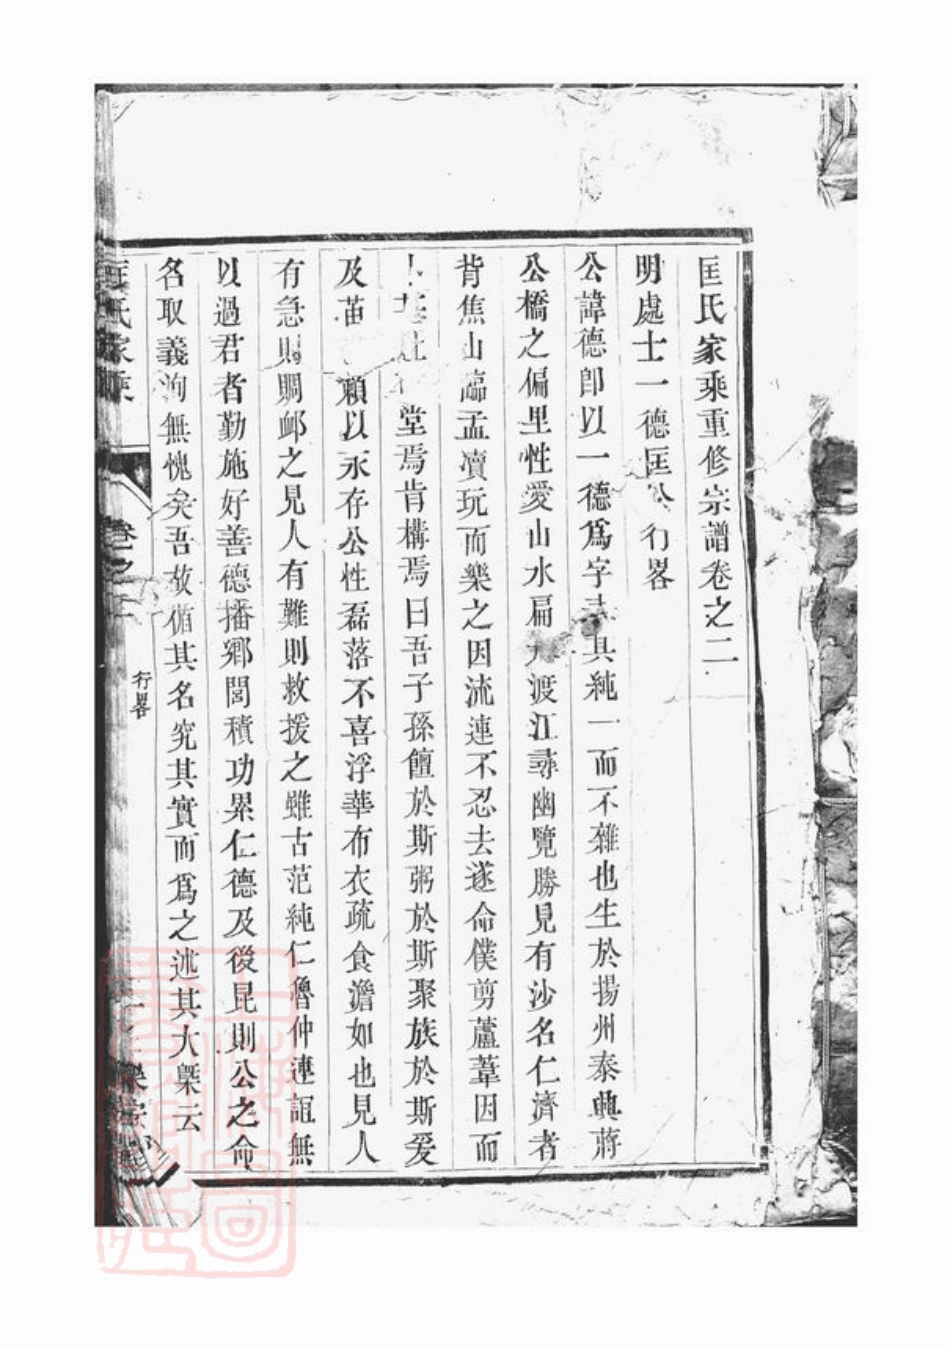 匡氏家乘重修宗譜卷之二
明處士一德匡公行畧
公諱德卽以一德爲字其純一而不雜也生於揚州泰興蔣
公橋之偏里性愛山水扁渡江尋幽覽勝見有沙名仁濟者
背焦山臨孟瀆玩而樂之因流連不忍去遂命僕剪蘆葦因而
堂焉肯構焉曰吾子孫饘於斯粥於斯聚族於斯爰
及苗賴以永存公性磊落不喜浮華布衣疏食澹如也見人
有急則賙䘏之見人有難則救援之雖古范純仁魯仲連詎無
以過君者勤施好善德播鄕閭積功累仁德及後昆則公之命
名取義洵無愧矣吾故循其名究其實而爲之述其大槩云
匡氏家乘
卷之二
行畧
一